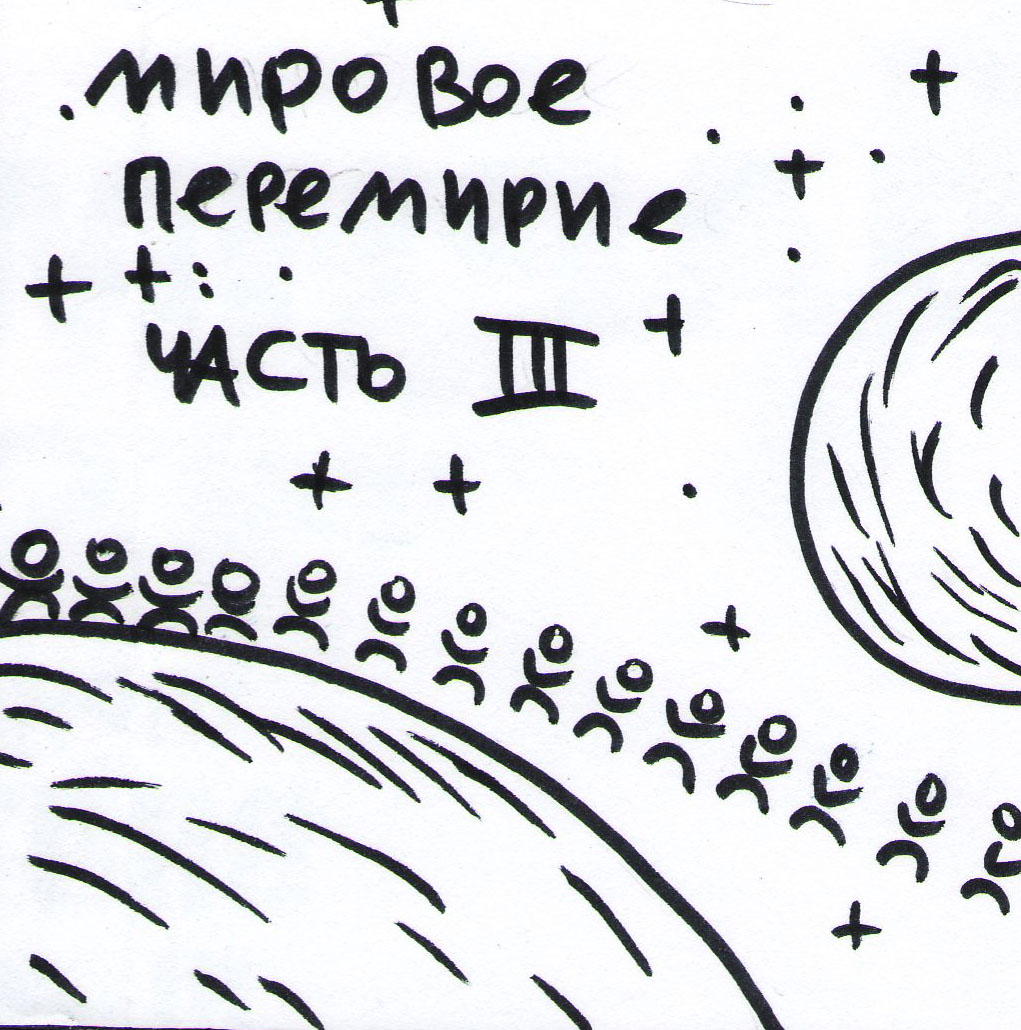 мировое
перемирие
ЧАСТЬ III